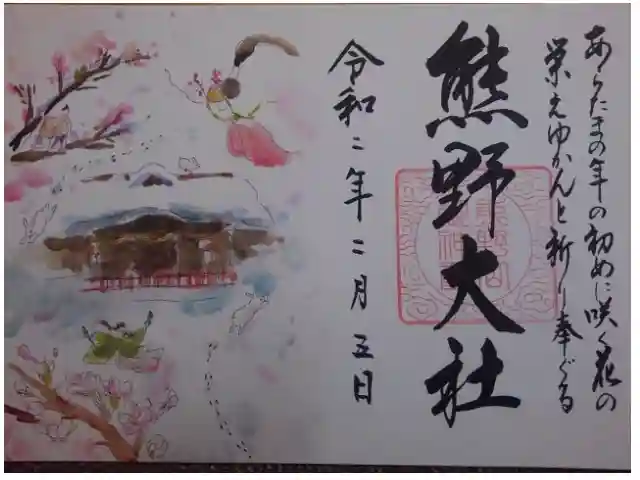 あらたまの年の初めに咲く花の
栄えゆかんと祈り奉ぐる
熊野大社
令和二年二月五日